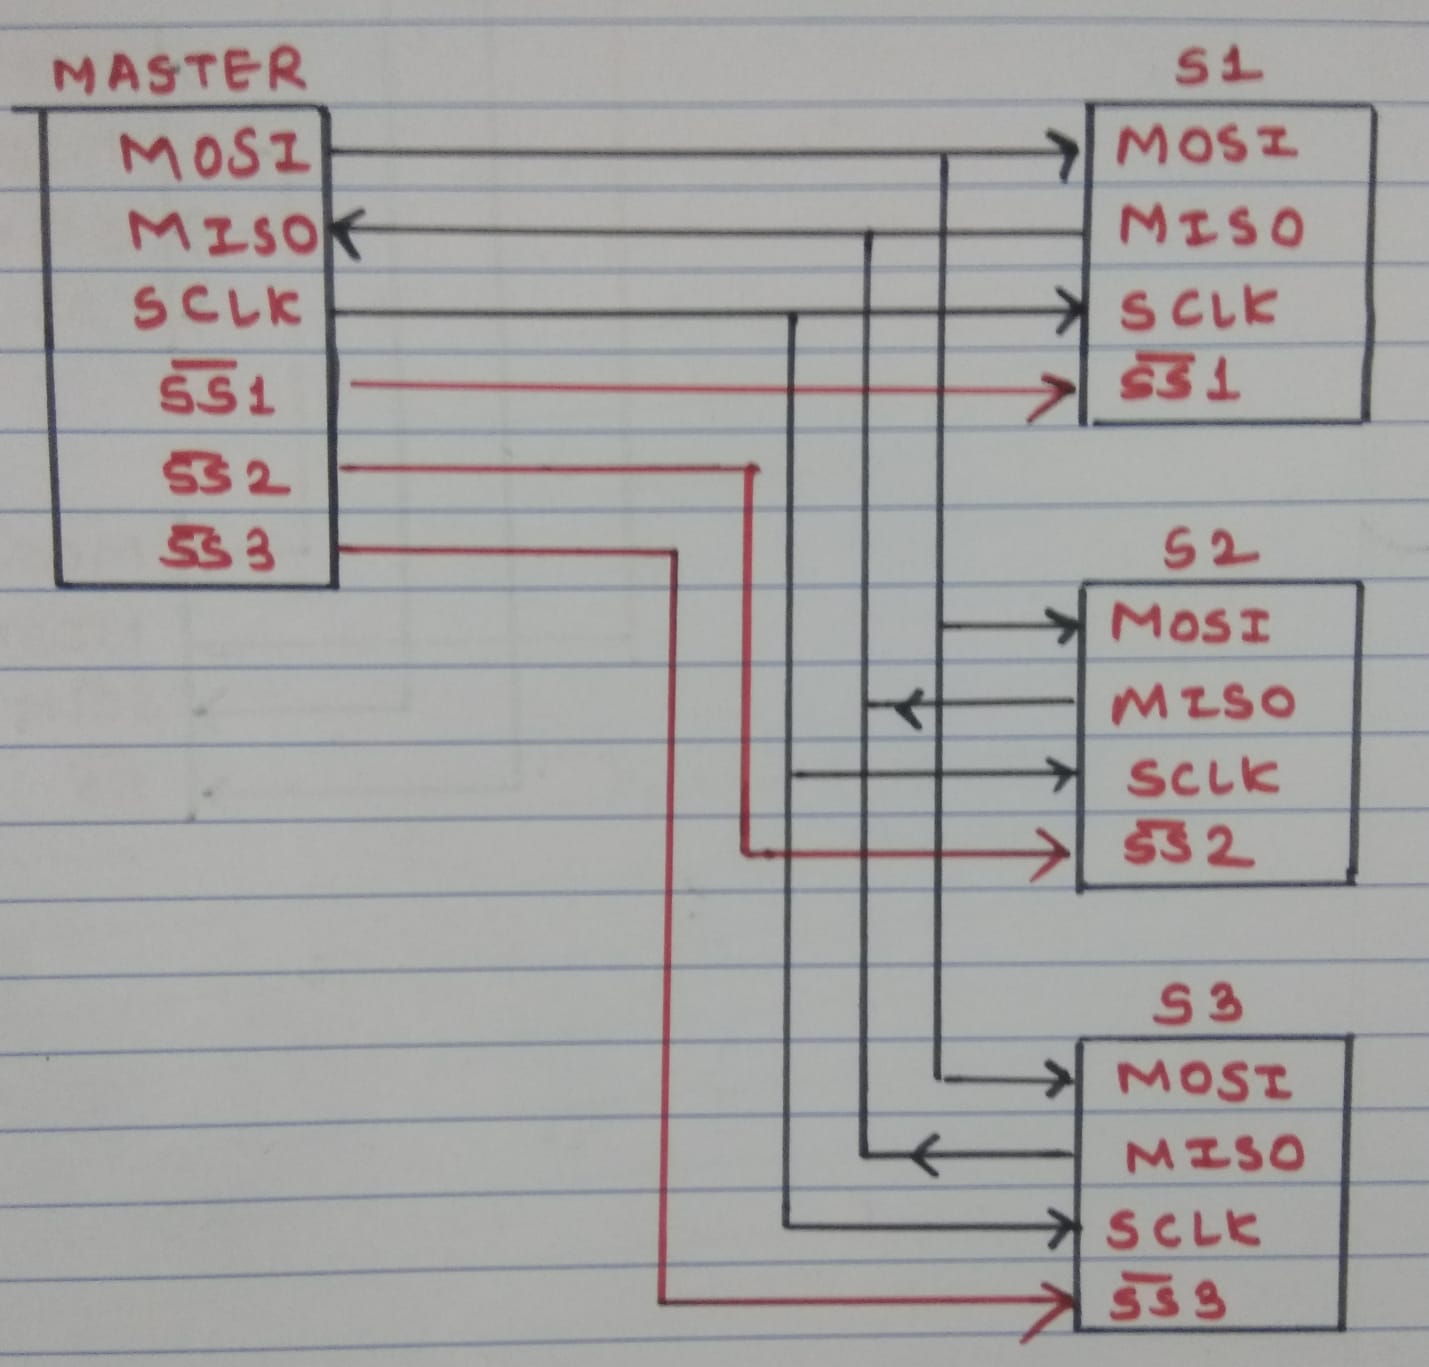 MASTER
MOSI
MISO
SCLK
S̅S̅1
S̅S̅2
S̅S̅3
S1
MOSI
MISO
SCLK
S̅S̅1
S2
MOSI
MISO
SCLK
S̅S̅2
S3
MOSI
MISO
SCLK
S̅S̅3